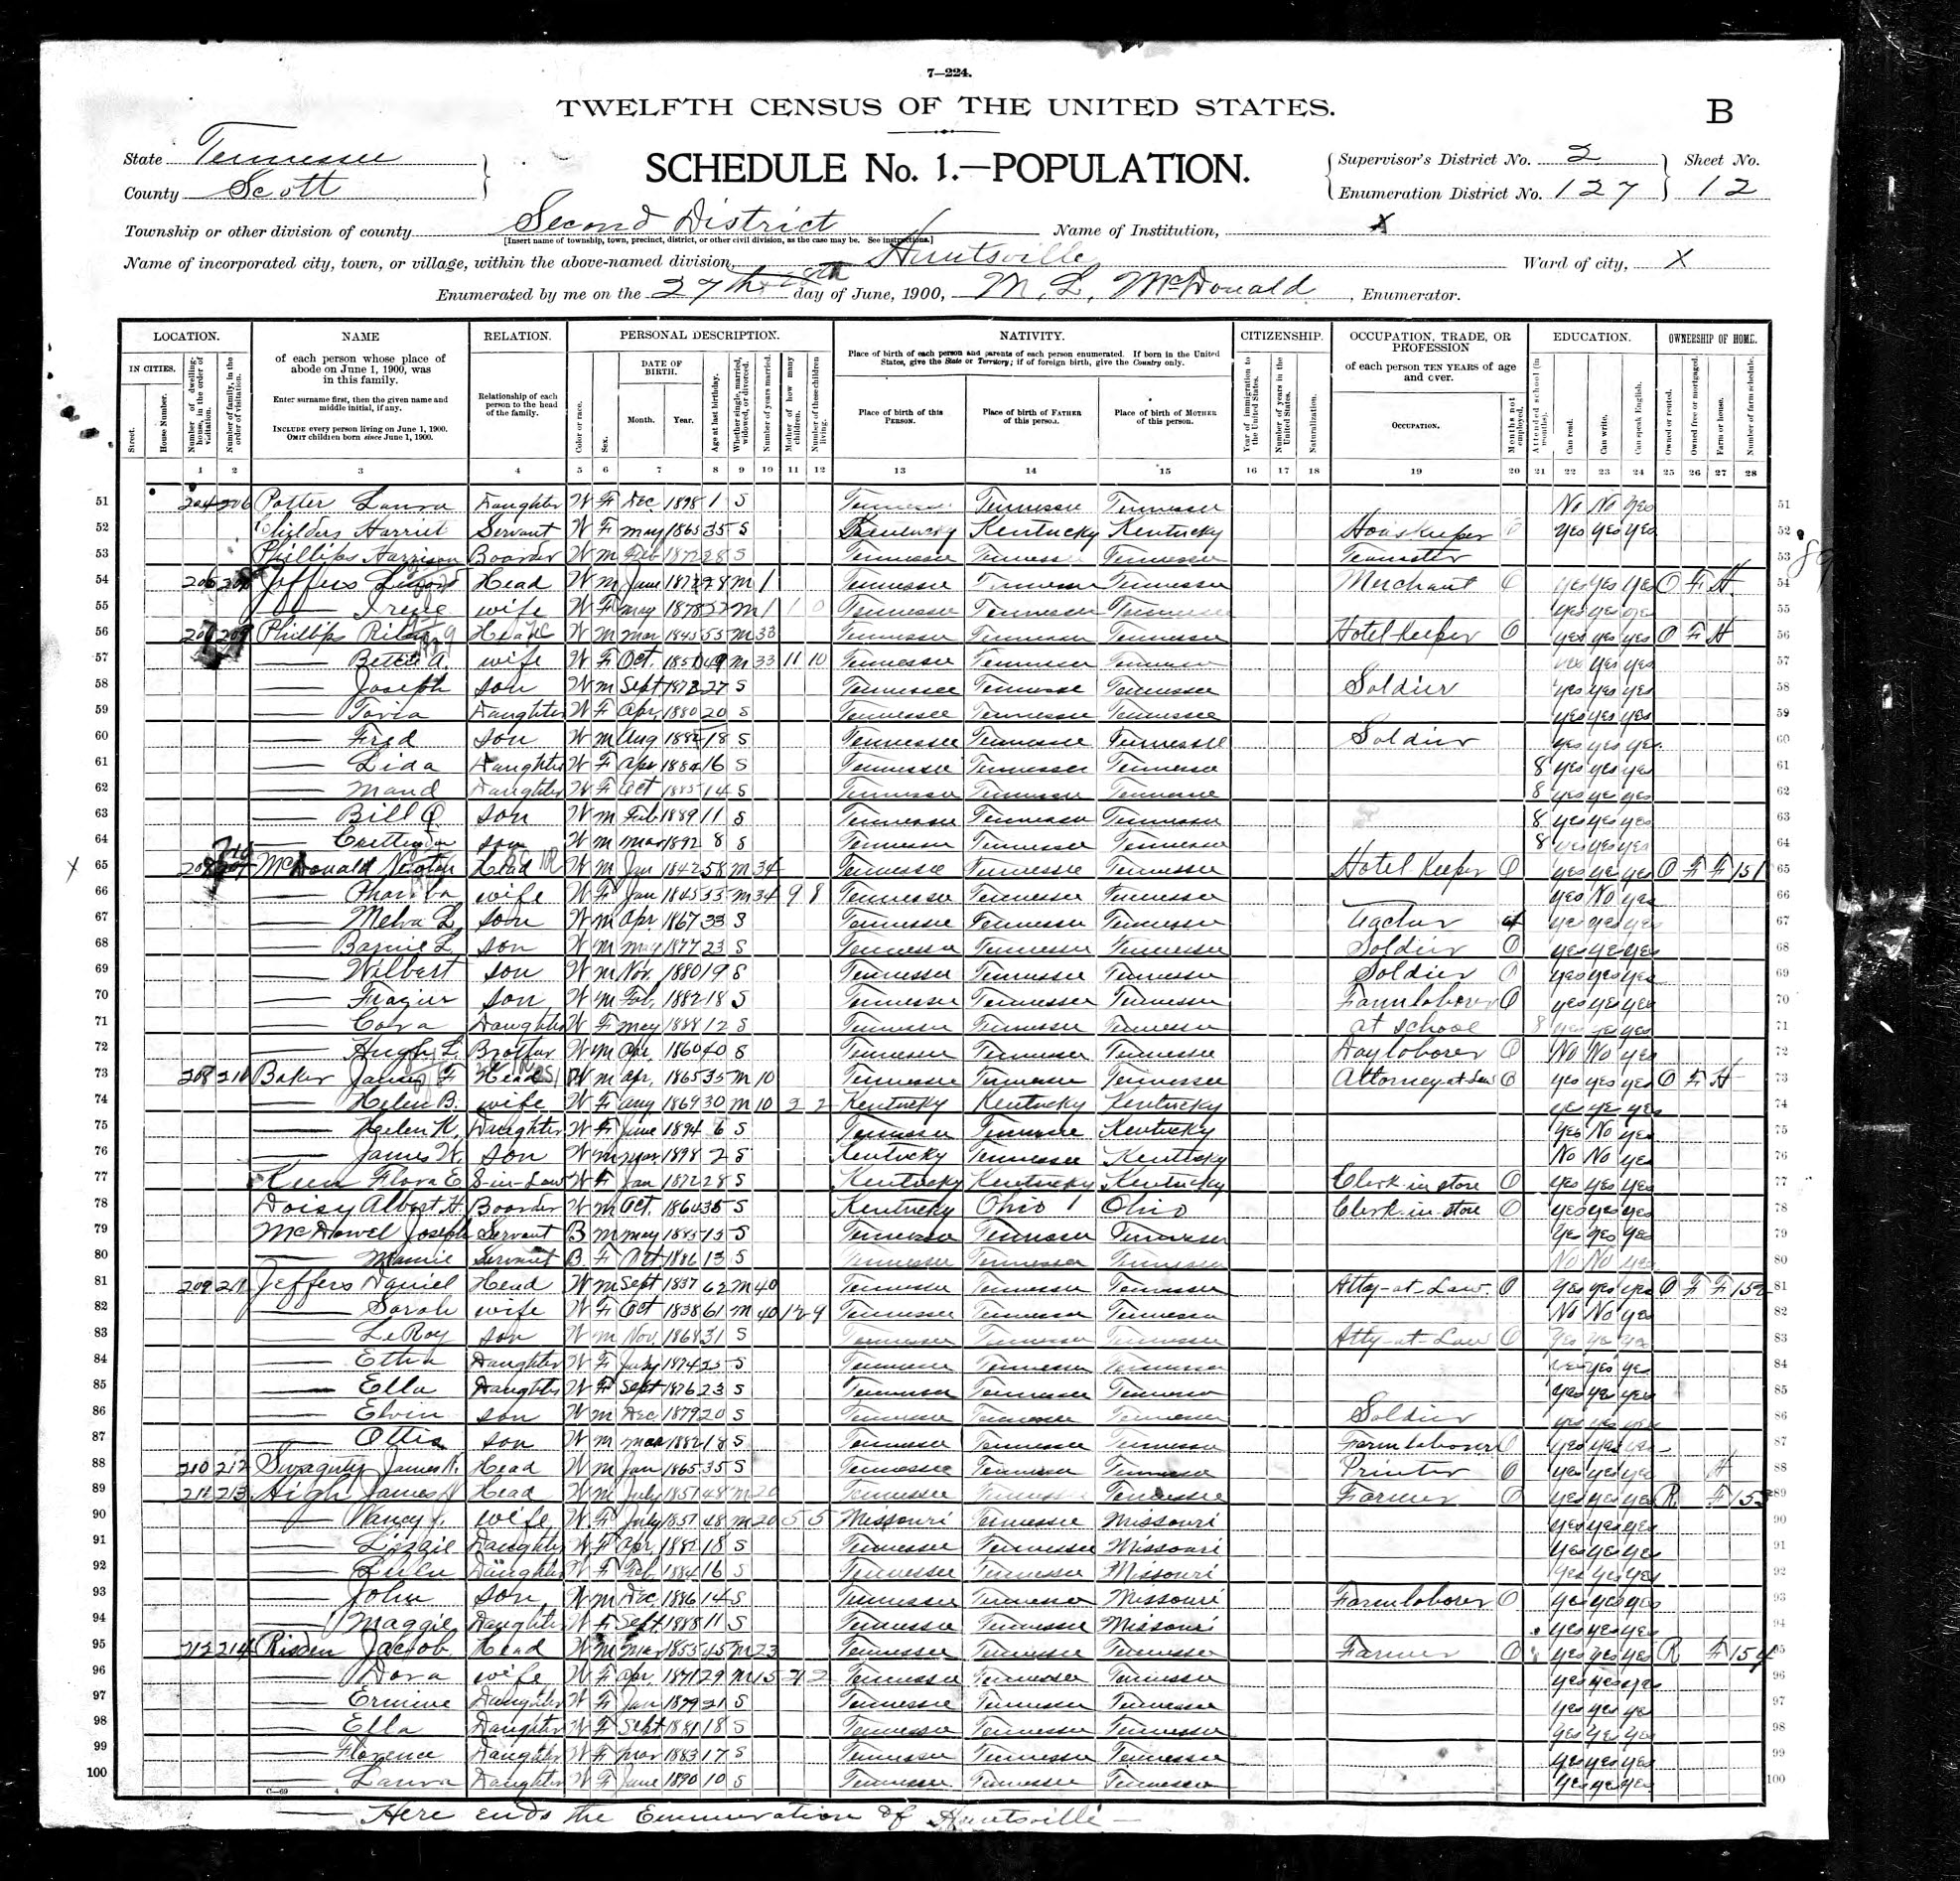 7—224.
TWELFTH CENSUS OF THE UNITED STATES.
B
State Tennessee
County Scott
SCHEDULE No. 1.—POPULATION.
Supervisor's District No. 2
Enumeration District No. 127
Sheet No. 12
Township or other division of county Second District
[Insert name of township, town, precinct, district, or other civil division, as the case may be. See instructions.]
Name of Institution, X
Name of incorporated city, town, or village, within the above-named division, Huntsville
Ward of city, X
Enumerated by me on the 27th 28th day of June, 1900, M. L. McDonald, Enumerator.
LOCATION. NAME RELATION. PERSONAL DESCRIPTION. NATIVITY. CITIZENSHIP. OCCUPATION, TRADE, OR PROFESSION EDUCATION. OWNERSHIP OF HOME.
IN CITIES.
Street.
House Number.
Number of dwelling-house, in the order of visitation.
Number of family, in the order of visitation.
of each person whose place of abode on June 1, 1900, was in this family.
Enter surname first, then the given name and middle initial, if any.
INCLUDE every person living on June 1, 1900.
OMIT children born since June 1, 1900.
Relationship of each person to the head of the family.
Color or race.
Sex.
DATE OF BIRTH.
Month. Year.
Age at last birthday.
Whether single, married, widowed, or divorced.
Number of years married.
Mother of how many children.
Number of these children living.
Place of birth of each person and parents of each person enumerated. If born in the United States, give the State or Territory; if of foreign birth, give the Country only.
Place of birth of this PERSON.
Place of birth of FATHER of this person.
Place of birth of MOTHER of this person.
Year of immigration to the United States.
Number of years in the United States.
Naturalization.
of each person TEN YEARS of age and over.
OCCUPATION.
Months not employed.
Attended school (in months).
Can read.
Can write.
Can speak English.
Owned or rented.
Owned free or mortgaged.
Farm or house.
Number of farm schedule.
1 2 3 4 5 6 7 8 9 10 11 12 13 14 15 16 17 18 19 20 21 22 23 24 25 26 27 28
51 204 206 Potter Laura Daughter W F Dec 1898 1 S Tennessee Tennessee Tennessee No No yes 51
52 Childers Harriet Servant W F may 1865 35 S Kentucky Kentucky Kentucky Houskeeper 0 yes yes yes 52
53 Phillips Harrison Boarder W m Feb 1872 28 S Tennessee Tennessee Tennessee Teamster 53
54 Jeffers Head W m June 28 m 1 Tennessee Tennessee Tennessee Merchant 0 yes yes yes O F H 54
55 — Irene wife W F may 1878 22 m 1 1 0 Tennessee Tennessee Tennessee yes yes yes 55
56 Phillips Riley Head W m mar 1845 55 m 33 Tennessee Tennessee Tennessee Hotel keeper 0 yes yes yes O F H 56
57 — A. wife W F Oct. 49 m 33 11 10 Tennessee Tennessee Tennessee yes yes yes 57
58 — Joseph son W m Sept 27 S Tennessee Tennessee Tennessee Soldier yes yes yes 58
59 — Daughter W F Apr, 1880 20 S Tennessee Tennessee Tennessee yes yes yes 59
60 — Fred son W m Aug 1882 18 S Tennessee Tennessee Tennessee Soldier yes yes yes 60
61 — Lida Daughter W F Apr 1884 16 S Tennessee Tennessee Tennessee 8 yes yes yes 61
62 — Maud Daughter W F Oct 1885 14 S Tennessee Tennessee Tennessee 8 yes ye yes 62
63 — Bill son W m Feb 1889 11 S Tennessee Tennessee Tennessee 8 yes yes yes 63
64 — son W m mar 1892 8 S Tennessee Tennessee Tennessee 8 yes yes yes 64
65 McDonald Newton Head W m Jan 1842 58 m 34 Tennessee Tennessee Tennessee Hotel Keeper 0 yes yes yes O F F 151 65
66 — wife W F Jan 1845 55 m 34 9 8 Tennessee Tennessee Tennessee yes No yes 66
67 — Melva L. son W m Apr 1867 33 S Tennessee Tennessee Tennessee 4 ye yes ye 67
68 — L son W m may 1877 23 S Tennessee Tennessee Tennessee Soldier 0 yes yes yes 68
69 — Wilbert son W m Nov. 1880 19 S Tennessee Tennessee Tennessee Soldier 0 yes yes yes 69
70 — Frazier son W m Feb, 1882 18 S Tennessee Tennessee Tennessee Farm laborer 0 yes yes yes 70
71 — Cora Daughter W F may 1888 12 S Tennessee Tennessee Tennessee at school 8 yes yes yes 71
72 — Hugh L. Brother W m Apr, 1860 40 S Tennessee Tennessee Tennessee Day laborer 0 No No yes 72
73 208 211 Baker James F Head W m apr, 1865 35 m 10 Tennessee Tennessee Tennessee Attorney-at-Law 0 yes yes yes O F H 73
74 — Helen B. wife W F aug 1869 30 m 10 2 2 Kentucky Kentucky Kentucky ye ye yes 74
75 — Helen K. Daughter W F June 1894 6 S Tennessee Tennessee Kentucky yes No yes 75
76 — James W. son W m mar. 1898 2 S Kentucky Tennessee Kentucky No No yes 76
77 Keen Flora E S-in-Law W F Jan 1872 28 S Kentucky Kentucky Kentucky Clerk in store 0 yes yes yes 77
78 Doisy Albert H. Boarder W m Oct. 1864 35 S Kentucky Ohio Ohio Clerk in store 0 yes yes yes 78
79 McDowel Joseph Servant B m may 1885 15 S Tennessee Tennessee Tennessee ye yes yes 79
80 — Mamie Servant B F Oct 1886 13 S Tennessee Tennessee Tennessee No No yes 80
81 209 211 Jeffers Daniel Head W m Sept 1837 62 m 40 Tennessee Tennessee Tennessee Atty-at-Law. 0 yes yes yes O F F 152 81
82 — Sarah wife W F Oct 1838 61 m 40 12 9 Tennessee Tennessee Tennessee No No yes 82
83 — LeRoy son W m Nov. 1868 31 S Tennessee Tennessee Tennessee Atty-at-Law 0 yes ye yes 83
84 — Daughter W F July 1874 25 S Tennessee Tennessee Tennessee yes yes ye 84
85 — Ella Daughter W F Sept 1876 23 S Tennessee Tennessee Tennessee yes ye yes 85
86 — Elvin son W m Dec. 1879 20 S Tennessee Tennessee Tennessee Soldier yes yes yes 86
87 — Ottis son W m mar 1882 18 S Tennessee Tennessee Tennessee Farm laborer 0 yes yes yes 87
88 210 212 James Head W m Jan 1865 35 S Tennessee Tennessee Tennessee Printer 0 yes yes yes H 88
89 211 213 High James Head W m July 1851 48 m 20 Tennessee Tennessee Tennessee Farmer 0 yes yes yes R F 153 89
90 — Nancy J. wife W F July 1851 48 m 20 5 5 Missouri Tennessee Missouri yes yes yes 90
91 — Lizzie Daughter W F Apr. 1882 18 S Tennessee Tennessee Missouri yes yes yes 91
92 — Lula Daughter W F Feb 1884 16 S Tennessee Tennessee Missouri yes ye yes 92
93 — John son W m Dec 1886 14 S Tennessee Tennessee Missouri Farm laborer 0 yes yes yes 93
94 — Maggie Daughter W F Sept 1888 11 S Tennessee Tennessee Missouri yes yes yes 94
95 212 214 Risden Jacob Head W m mar 1855 45 m 23 Tennessee Tennessee Tennessee Farmer 0 yes yes yes R F 154 95
96 — Dora wife W F Apr. 1871 29 m 15 2 2 Tennessee Tennessee Tennessee yes yes yes 96
97 — Daughter W F Jan 1879 21 S Tennessee Tennessee Tennessee yes yes ye 97
98 — Ella Daughter W F Sept 1881 18 S Tennessee Tennessee Tennessee yes yes ye 98
99 — Florence Daughter W F mar 1883 17 S Tennessee Tennessee Tennessee yes yes yes 99
100 — Laura Daughter W F June 1890 10 S Tennessee Tennessee Tennessee yes yes yes 100
C—69 4
— Here ends the Enumeration of Huntsville —